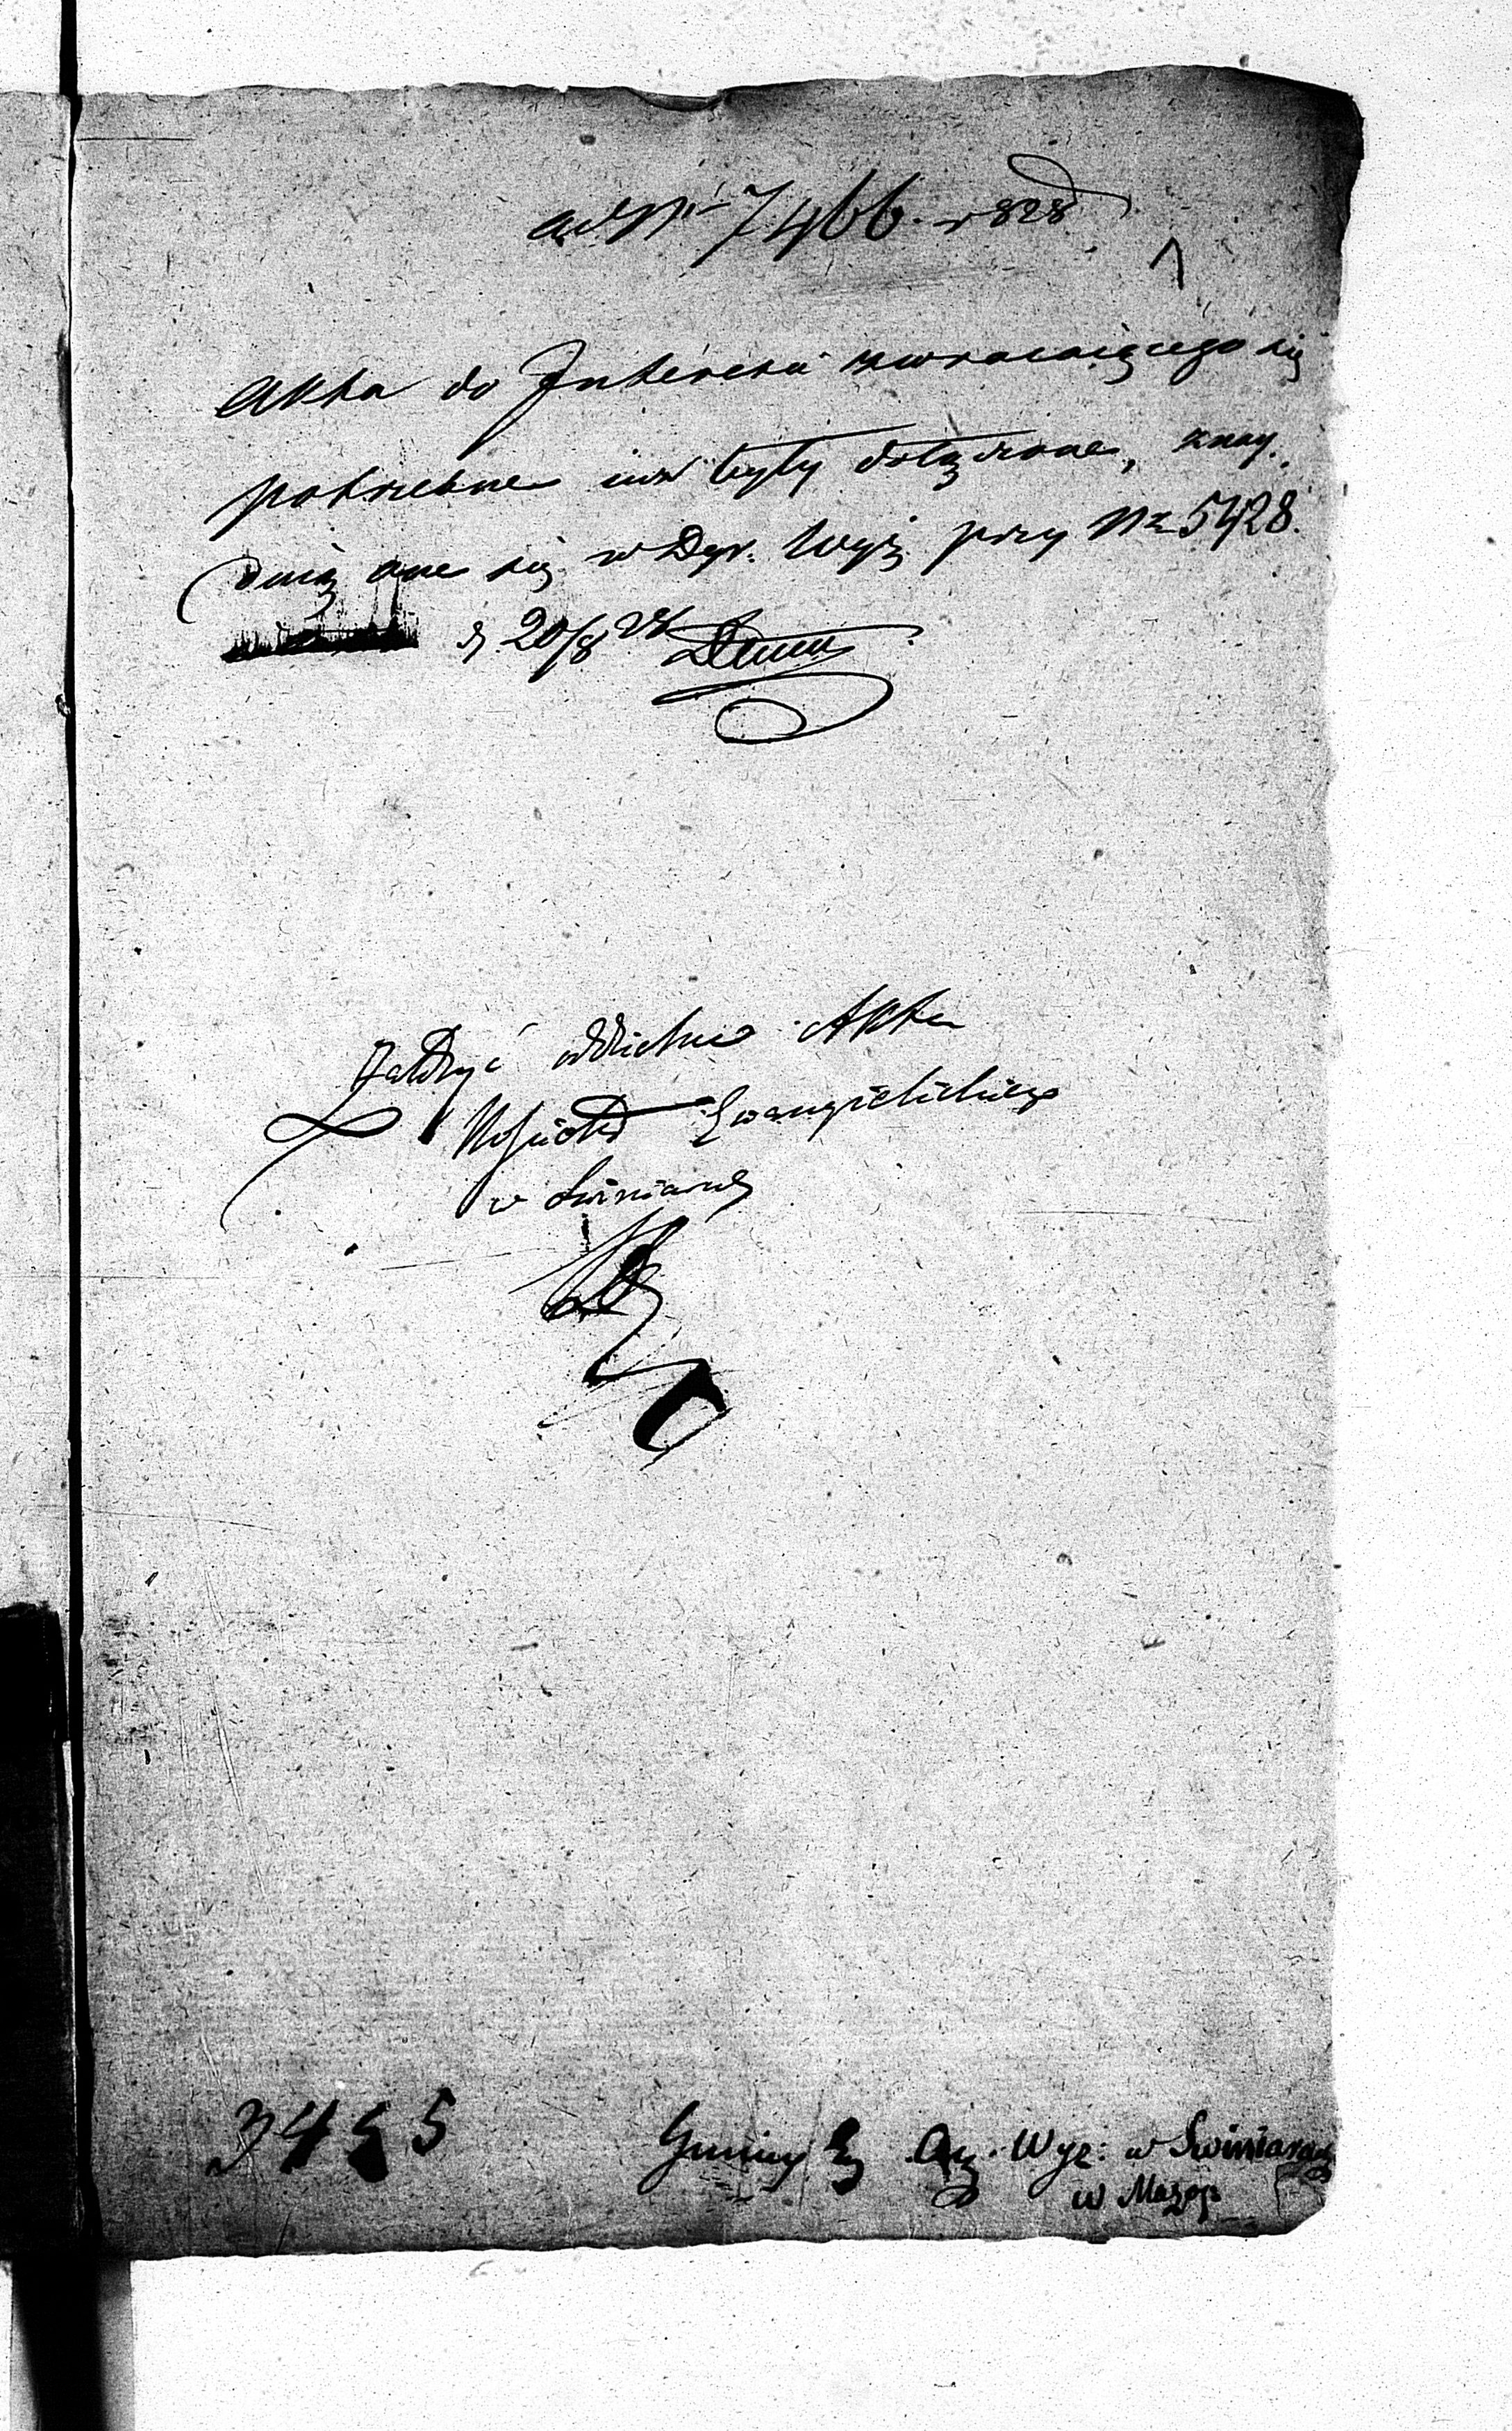 ad Nr 7466. r 828
Akta do Interesu zwracaiącego się
potrzebne iuż były dołączone, znay-
duią one się w Dyr. Wyż. przy Nr 5428.
d 20/8 28
Założyć oddzielnie Akta
Kościoła Ewangelickiego
w Swiniarach
3455
Gminy Ew. Aug. Wyz: w Swiniarach
w Mazow